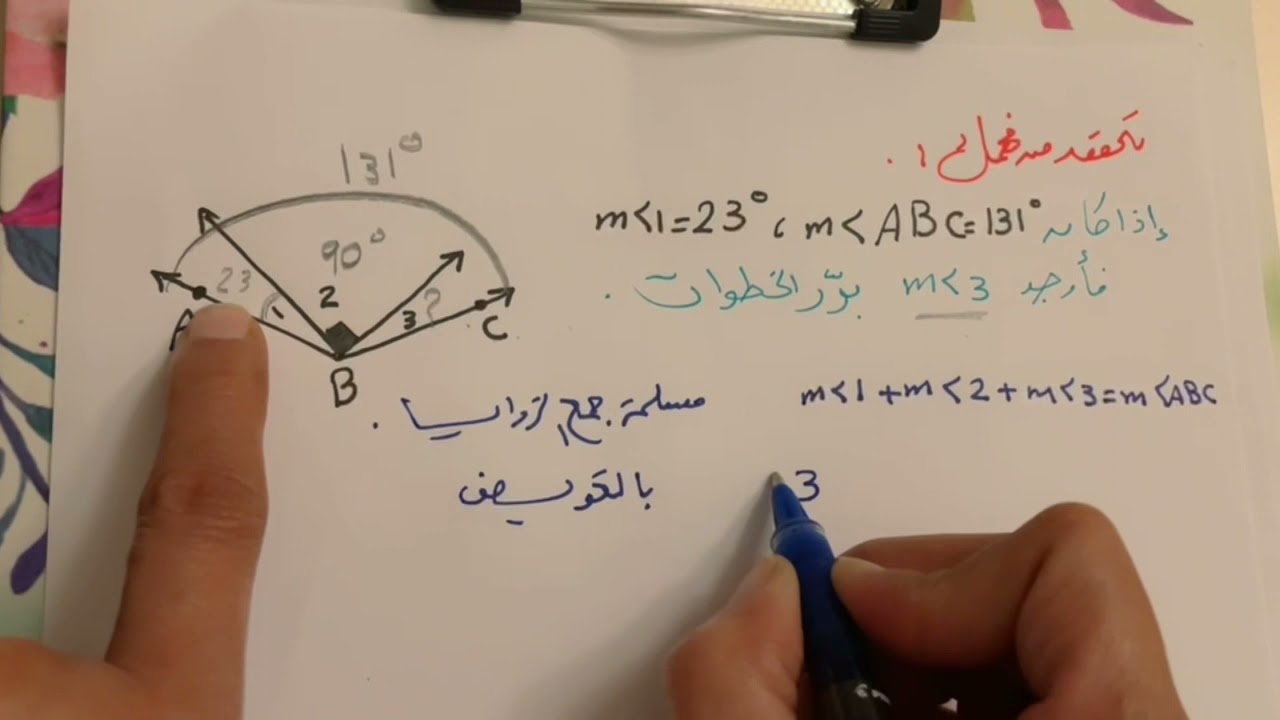 تحقق من فهمك 1 .
إذا كان m<ABC=131° ، m<1=23°
فأوجد m<3 برّر الخطوات .
131°
90°
23
2
1
3
?
A
B
C
m<1+m<2+m<3=m<ABC مسلمة جمع الزوايا .
3 بالتعويض